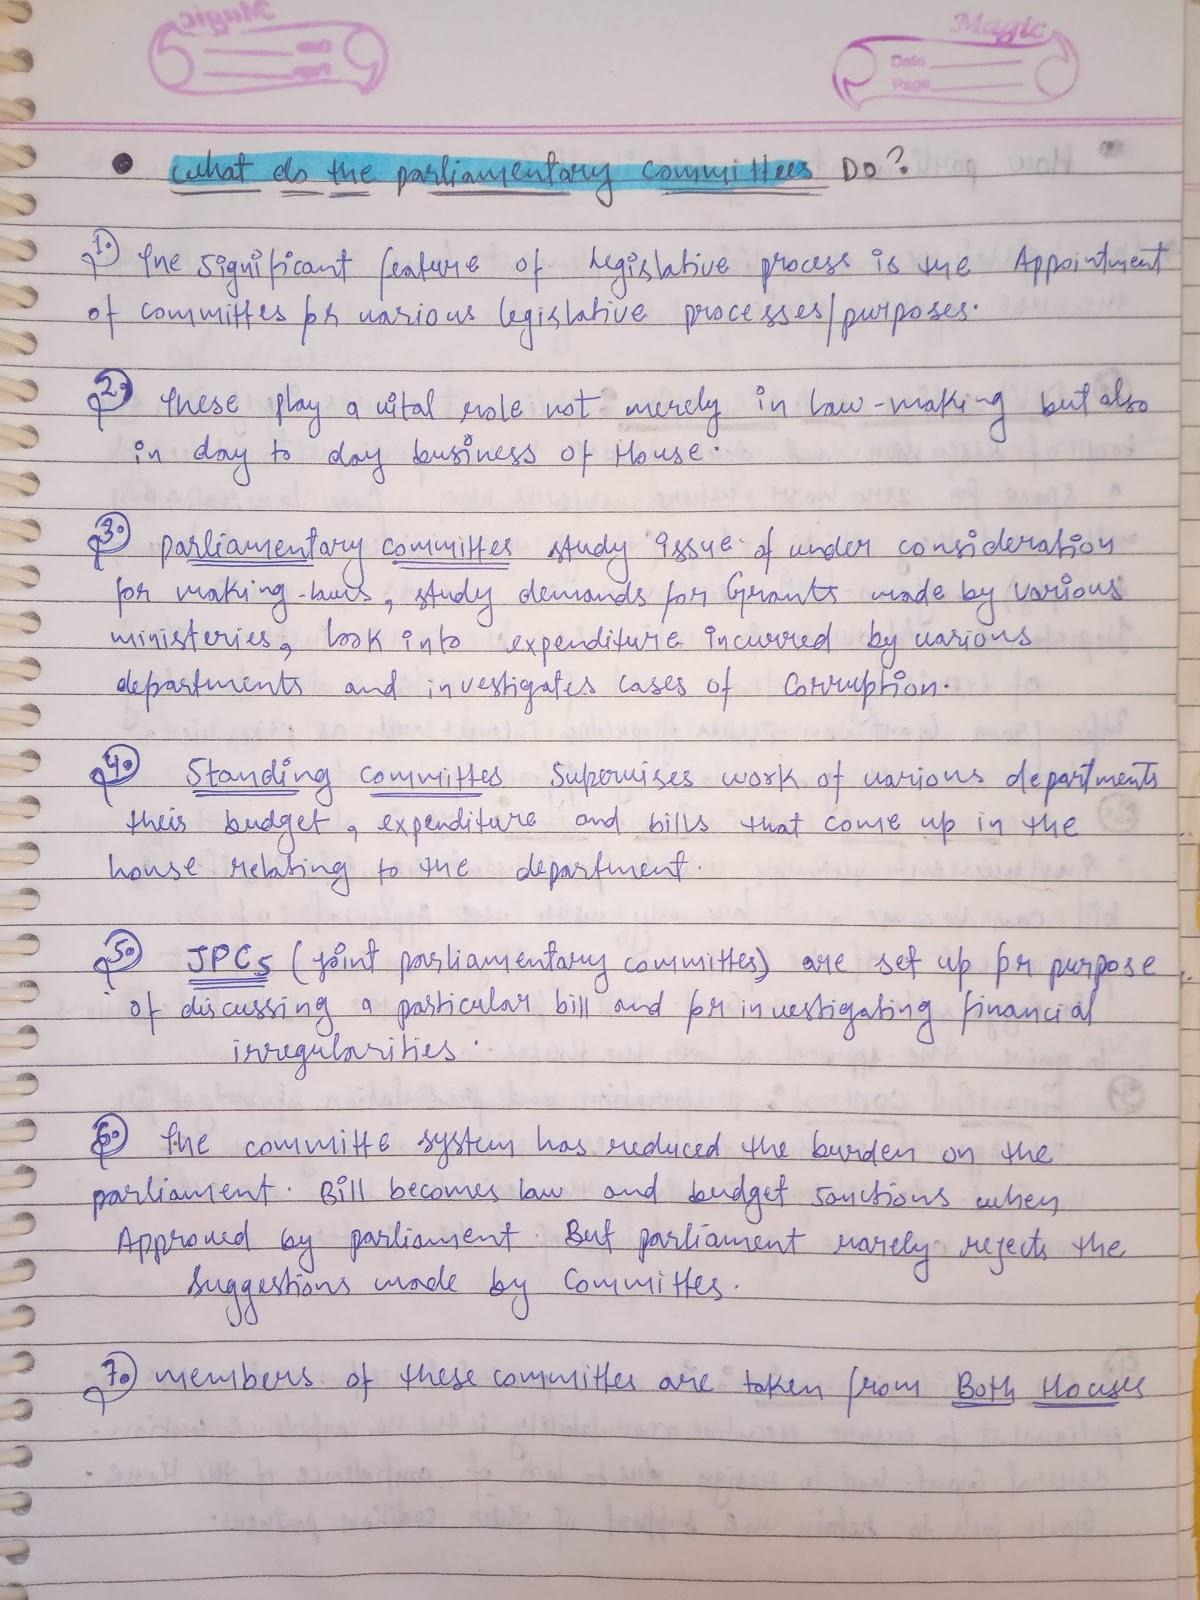 Magic
Magic
Date
Page
• What do the parliamentary Committees Do?
1. The Significant feature of legislative process is the Appointment
of committes for various legislative processes/purposes.
2. These play a vital role not merely in law-making but also
in day to day business of House.
3. Parliamentary committes study issue of under consideration
for making laws, study demands for Grants made by various
ministeries, look into expenditure incurred by various
departments and investigates cases of Corruption.
4. Standing committes Supervises work of various departments
their budget, expenditure and bills that come up in the
house relating to the department.
5. JPCs (joint parliamentary committes) are set up for purpose
of discussing a particular bill and for investigating financial
irregularities.
6. The committe system has reduced the burden on the
parliament. Bill becomes law and budget sanctions when
Approved by parliament. But parliament rarely rejects the
Suggestions made by Committes.
7. members of these committes are taken from Both Houses